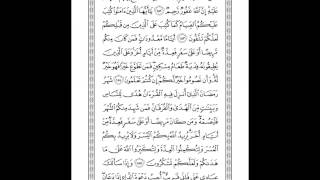 عَلَيْهِ إِنَّ اللَّهَ غَفُورٌ رَّحِيمٌ ﴿١٨٢﴾ يَٰٓأَيُّهَا الَّذِينَ ءَامَنُوا كُتِبَ
عَلَيْكُمُ الصِّيَامُ كَمَا كُتِبَ عَلَى الَّذِينَ مِن قَبْلِكُمْ
لَعَلَّكُمْ تَتَّقُونَ ﴿١٨٣﴾ أَيَّامًا مَّعْدُودَٰتٍ فَمَن كَانَ مِنكُم
مَّرِيضًا أَوْ عَلَىٰ سَفَرٍ فَعِدَّةٌ مِّنْ أَيَّامٍ أُخَرَ وَعَلَى الَّذِينَ
يُطِيقُونَهُ فِدْيَةٌ طَعَامُ مِسْكِينٍ فَمَن تَطَوَّعَ خَيْرًا فَهُوَ خَيْرٌ
لَّهُ وَأَن تَصُومُوا خَيْرٌ لَّكُمْ إِن كُنتُمْ تَعْلَمُونَ ﴿١٨٤﴾ شَهْرُ
رَمَضَانَ الَّذِي أُنزِلَ فِيهِ الْقُرْءَانُ هُدًى لِّلنَّاسِ
وَبَيِّنَٰتٍ مِّنَ الْهُدَىٰ وَالْفُرْقَانِ فَمَن شَهِدَ مِنكُمُ الشَّهْرَ
فَلْيَصُمْهُ وَمَن كَانَ مَرِيضًا أَوْ عَلَىٰ سَفَرٍ فَعِدَّةٌ مِّنْ
أَيَّامٍ أُخَرَ يُرِيدُ اللَّهُ بِكُمُ الْيُسْرَ وَلَا يُرِيدُ بِكُمُ
الْعُسْرَ وَلِتُكْمِلُوا الْعِدَّةَ وَلِتُكَبِّرُوا اللَّهَ عَلَىٰ مَا
هَدَىٰكُمْ وَلَعَلَّكُمْ تَشْكُرُونَ ﴿١٨٥﴾ وَإِذَا سَأَلَكَ
عِبَادِي عَنِّي فَإِنِّي قَرِيبٌ أُجِيبُ دَعْوَةَ الدَّاعِ إِذَا دَعَانِ